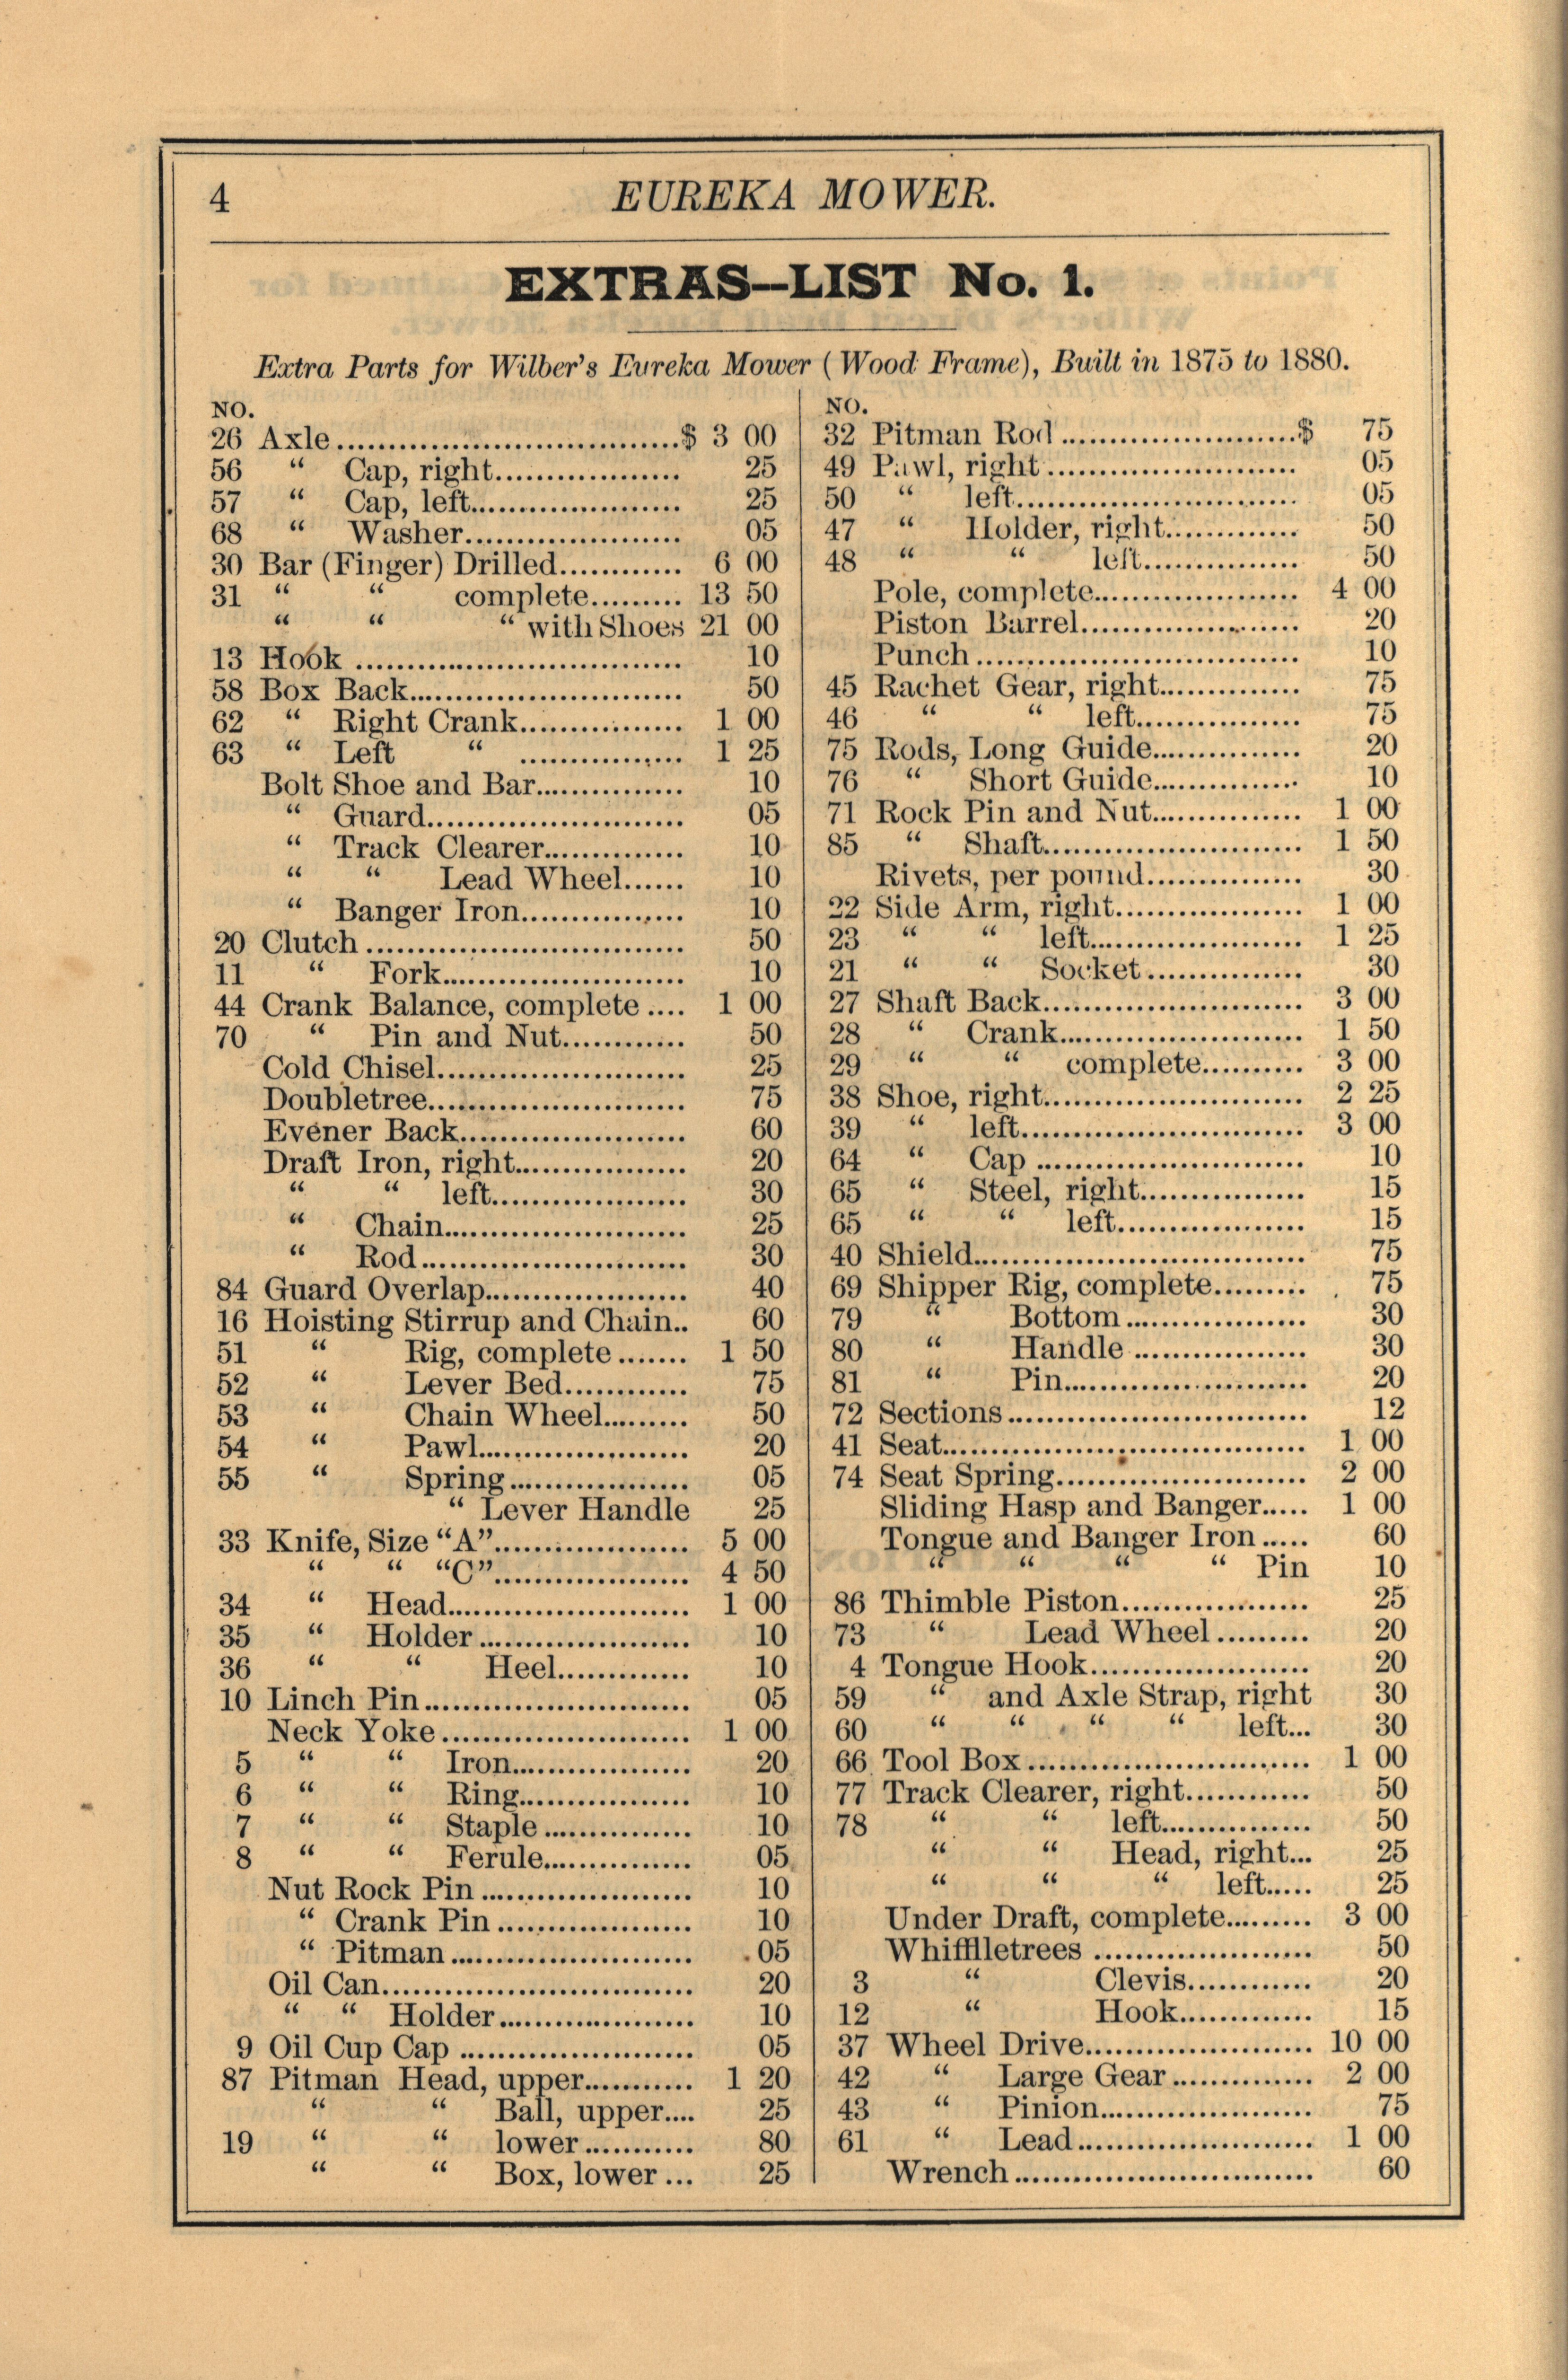 4
EUREKA MOWER.
EXTRAS—LIST No. 1.
Extra Parts for Wilber's Eureka Mower (Wood Frame), Built in 1875 to 1880.
NO.
26 Axle..............................$ 3 00
56 “ Cap, right................. 25
57 “ Cap, left................... 25
68 “ Washer.................... 05
30 Bar (Finger) Drilled............ 6 00
31 “ “ complete......... 13 50
“ “ “ with Shoes 21 00
13 Hook .............................. 10
58 Box Back......................... 50
62 “ Right Crank............... 1 00
63 “ Left “ ............... 1 25
Bolt Shoe and Bar............... 10
“ Guard........................ 05
“ Track Clearer.............. 10
“ “ Lead Wheel...... 10
“ Banger Iron............... 10
20 Clutch .............................. 50
11 “ Fork....................... 10
44 Crank Balance, complete .... 1 00
70 “ Pin and Nut............ 50
Cold Chisel....................... 25
Doubletree........................ 75
Evener Back..................... 60
Draft Iron, right................ 20
“ “ left.................. 30
“ Chain....................... 25
“ Rod......................... 30
84 Guard Overlap................... 40
16 Hoisting Stirrup and Chain.. 60
51 “ Rig, complete ....... 1 50
52 “ Lever Bed............ 75
53 “ Chain Wheel......... 50
54 “ Pawl.................... 20
55 “ Spring................. 05
“ Lever Handle 25
33 Knife, Size “A”.................. 5 00
“ “ “C”.................. 4 50
34 “ Head....................... 1 00
35 “ Holder.................... 10
36 “ “ Heel............. 10
10 Linch Pin......................... 05
Neck Yoke....................... 1 00
5 “ “ Iron................. 20
6 “ “ Ring................ 10
7 “ “ Staple .............. 10
8 “ “ Ferule.............. 05
Nut Rock Pin .................... 10
“ Crank Pin .................. 10
“ Pitman ....................... 05
Oil Can............................. 20
“ “ Holder................... 10
9 Oil Cup Cap ...................... 05
87 Pitman Head, upper........... 1 20
“ “ Ball, upper.... 25
19 “ “ lower ........... 80
“ “ Box, lower ... 25
NO.
32 Pitman Rod .......................$ 75
49 Pawl, right........................ 05
50 “ left........................... 05
47 “ Holder, right............. 50
48 “ “ left............... 50
Pole, complete................... 4 00
Piston Barrel..................... 20
Punch .............................. 10
45 Rachet Gear, right.............. 75
46 “ “ left................ 75
75 Rods, Long Guide............... 20
76 “ Short Guide.............. 10
71 Rock Pin and Nut............... 1 00
85 “ Shaft........................ 1 50
Rivets, per pound............... 30
22 Side Arm, right.................. 1 00
23 “ “ left..................... 1 25
21 “ “ Socket............... 30
27 Shaft Back......................... 3 00
28 “ Crank....................... 1 50
29 “ “ complete.......... 3 00
38 Shoe, right......................... 2 25
39 “ left........................... 3 00
64 “ Cap ......................... 10
65 “ Steel, right................ 15
65 “ “ left.................. 15
40 Shield............................... 75
69 Shipper Rig, complete......... 75
79 “ Bottom................. 30
80 “ Handle ................ 30
81 “ Pin....................... 20
72 Sections............................ 12
41 Seat.................................. 1 00
74 Seat Spring........................ 2 00
Sliding Hasp and Banger..... 1 00
Tongue and Banger Iron ..... 60
“ “ “ “ Pin 10
86 Thimble Piston.................. 25
73 “ Lead Wheel......... 20
4 Tongue Hook..................... 20
59 “ and Axle Strap, right 30
60 “ “ “ “ left... 30
66 Tool Box........................... 1 00
77 Track Clearer, right............ 50
78 “ “ left............... 50
“ “ Head, right... 25
“ “ “ left..... 25
Under Draft, complete......... 3 00
Whiffletrees ..................... 50
3 “ Clevis............ 20
12 “ Hook............. 15
37 Wheel Drive...................... 10 00
42 “ Large Gear .............. 2 00
43 “ Pinion..................... 75
61 “ Lead....................... 1 00
Wrench............................. 60